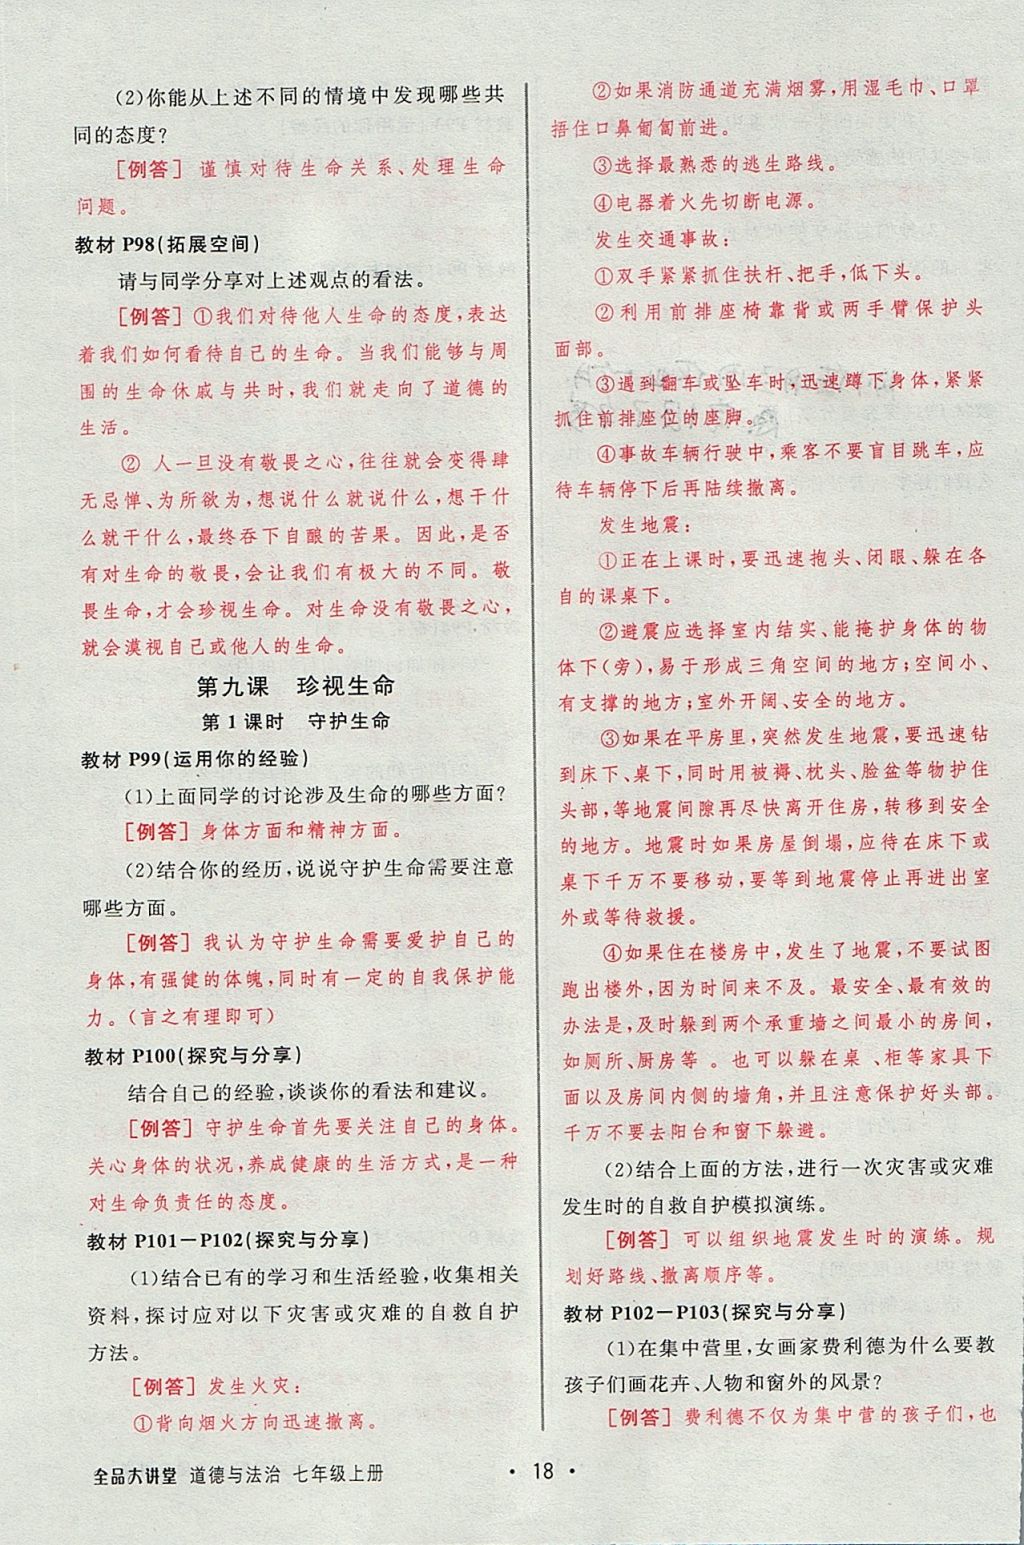 (2)你能从上述不同的情境中发现哪些共
同的态度?
[例答] 谨慎对待生命关系、处理生命
问题。
教材 P98(拓展空间)
请与同学分享对上述观点的看法。
[例答] ①我们对待他人生命的态度,表达
着我们如何看待自己的生命。当我们能够与周
围的生命休戚与共时,我们就走向了道德的
生活。
② 人一旦没有敬畏之心,往往就会变得肆
无忌惮、为所欲为,想说什么就说什么,想干什
么就干什么,最终吞下自酿的苦果。因此,是否
有对生命的敬畏,会让我们有极大的不同。敬
畏生命,才会珍视生命。对生命没有敬畏之心,
就会漠视自己或他人的生命。
第九课 珍视生命
第 1 课时 守护生命
教材 P99(运用你的经验)
(1)上面同学的讨论涉及生命的哪些方面?
[例答] 身体方面和精神方面。
(2)结合你的经历,说说守护生命需要注意
哪些方面。
[例答] 我认为守护生命需要爱护自己的
身体,有强健的体魄,同时有一定的自我保护能
力。(言之有理即可)
教材 P100(探究与分享)
结合自己的经验,谈谈你的看法和建议。
[例答] 守护生命首先要关注自己的身体。
关心身体的状况,养成健康的生活方式,是一种
对生命负责任的态度。
教材 P101—P102(探究与分享)
(1)结合已有的学习和生活经验,收集相关
资料,探讨应对以下灾害或灾难的自救自护
方法。
[例答] 发生火灾:
①背向烟火方向迅速撤离。
②如果消防通道充满烟雾,用湿毛巾、口罩
捂住口鼻匍匐前进。
③选择最熟悉的逃生路线。
④电器着火先切断电源。
发生交通事故:
①双手紧紧抓住扶杆、把手,低下头。
②利用前排座椅靠背或两手臂保护头
面部。
③遇到翻车或坠车时,迅速蹲下身体,紧紧
抓住前排座位的座脚。
④事故车辆行驶中,乘客不要盲目跳车,应
待车辆停下后再陆续撤离。
发生地震:
①正在上课时,要迅速抱头、闭眼、躲在各
自的课桌下。
②避震应选择室内结实、能掩护身体的物
体下(旁),易于形成三角空间的地方;空间小、
有支撑的地方;室外开阔、安全的地方。
③如果在平房里,突然发生地震,要迅速钻
到床下、桌下,同时用被褥、枕头、脸盆等物护住
头部,等地震间隙再尽快离开住房,转移到安全
的地方。地震时如果房屋倒塌,应待在床下或
桌下千万不要移动,要等到地震停止再进出室
外或等待救援。
④如果住在楼房中,发生了地震,不要试图
跑出楼外,因为时间来不及。最安全、最有效的
办法是,及时躲到两个承重墙之间最小的房间,
如厕所、厨房等 。也可以躲在桌 、柜等家具下
面以及房间内侧的墙角,并且注意保护好头部。
千万不要去阳台和窗下躲避。
(2)结合上面的方法,进行一次灾害或灾难
发生时的自救自护模拟演练。
[例答] 可以组织地震发生时的演练。规
划好路线、撤离顺序等。
教材 P102—P103(探究与分享)
(1)在集中营里,女画家费利德为什么要教
孩子们画花卉、人物和窗外的风景?
[例答] 费利德不仅为集中营的孩子们,也
全品大讲堂 道德与法治 七年级上册
· 18 ·